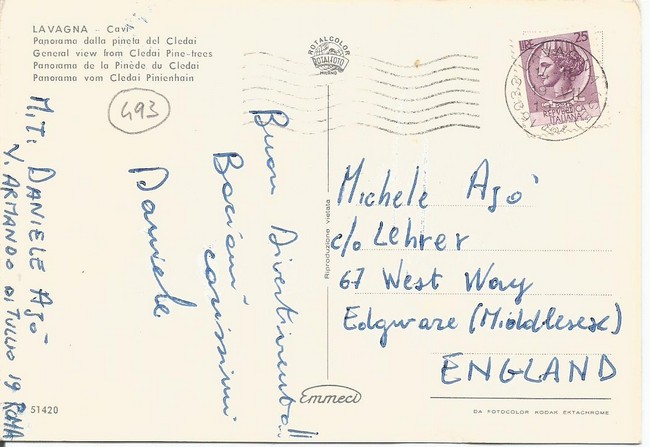 LAVAGNA - Cavi
Panorama dalla pineta del Cledai
General view from Cledai Pine-trees
Panorama de la Pinède du Cledai
Panorama vom Cledai Pinienhain
493
ROTALCOLOR
ROTALFOTO
MILANO
LIRE 25
REPVBBLICA
ITALIANA
M.T: DANIELE AJÒ
V. ARMANDO DI TULLIO 19 ROMA
Buon Divertimento!!
Bacioni
carissimi
Daniele
Riproduzione vietata
Michele Ajò
c/o Lehrer
67 West Way
Edgware (Middlesex)
ENGLAND
51420
Emmeci
DA FOTOCOLOR KODAK EKTACHROME